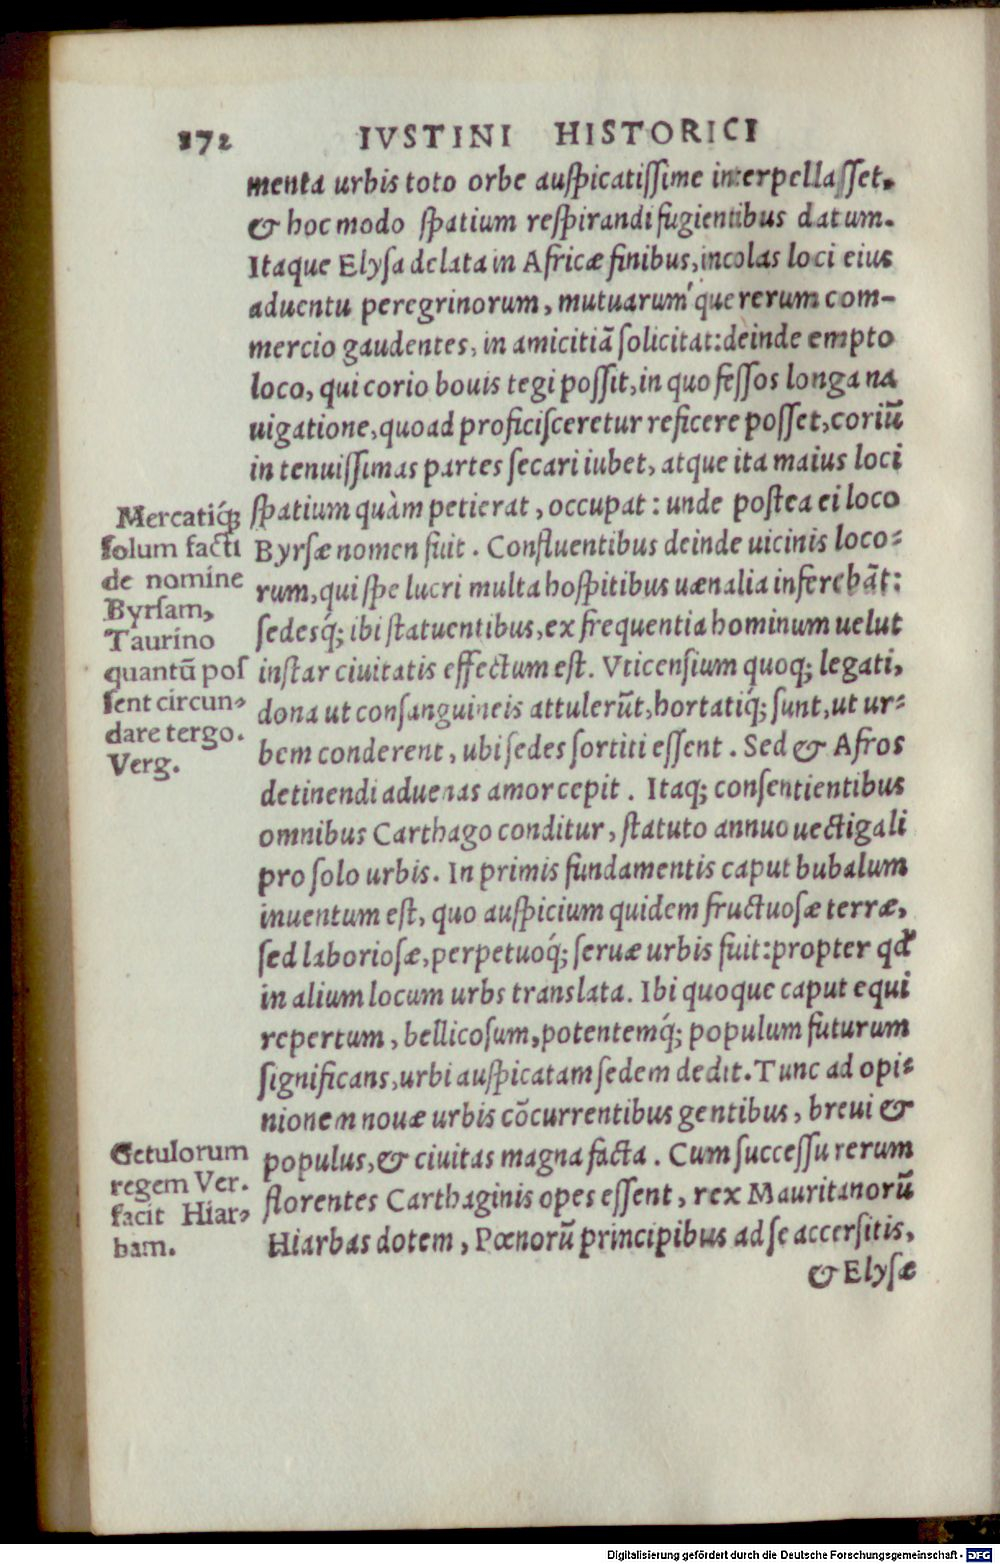 172 IVSTINI HISTORICI
menta urbis toto orbe auſpicatiſſime interpellaſſet,
& hoc modo ſpatium reſpirandi fugientibus datum.
Itaque Elyſa delata in Africæ finibus, incolas loci eius
aduentu peregrinorum, mutuarum´que rerum com-
mercio gaudentes, in amicitiã ſolicitat: deinde empto
loco, qui corio bouis tegi poſſit, in quo feſſos longa na
uigatione, quoad proficiſceretur reficere poſſet, coriũ
in tenuiſſimas partes ſecari iubet, atque ita maius loci
ſpatium quàm petierat, occupat: unde poſtea ei loco
Byrſæ nomen fuit. Confluentibus deinde uicinis loco-
rum, qui ſpe lucri multa hoſpitibus uænalia inferebãt:
ſedesq́; ibi ſtatuentibus, ex frequentia hominum uelut
inſtar ciuitatis effectum eſt. Vticenſium quoq; legati,
dona ut conſanguineis attulerũt, hortatiq́; ſunt, ut ur-
bem conderent, ubi ſedes ſortiti eſſent. Sed & Afros
detinendi aduenas amor cepit. Itaq; conſentientibus
omnibus Carthago conditur, ſtatuto annuo uectigali
pro ſolo urbis. In primis fundamentis caput bubalum
inuentum eſt, quo auſpicium quidem fructuoſæ terræ,
ſed laborioſæ, perpetuoq́; ſeruæ urbis fuit: propter qđ
in alium locum urbs translata. Ibi quoque caput equi
repertum, bellicoſum, potentemq́; populum futurum
ſignificans, urbi auſpicatam ſedem dedit. Tunc ad opi-
nionem nouæ urbis cõcurrentibus gentibus, breui &
populus, & ciuitas magna facta. Cum ſucceſſu rerum
florentes Carthaginis opes eſſent, rex Mauritanorũ
Hiarbas dotem, Pœnorũ principibus ad ſe accerſitis,
& Elyſæ
Mercatiq́;
ſolum facti
de nomine
Byrſam,
Taurino
quantũ poſ
ſent circun-
dare tergo.
Verg.
Getulorum
regem Ver.
facit Hiar-
bam.
Digitalisierung gefördert durch die Deutsche Forschungsgemeinschaft - DFG